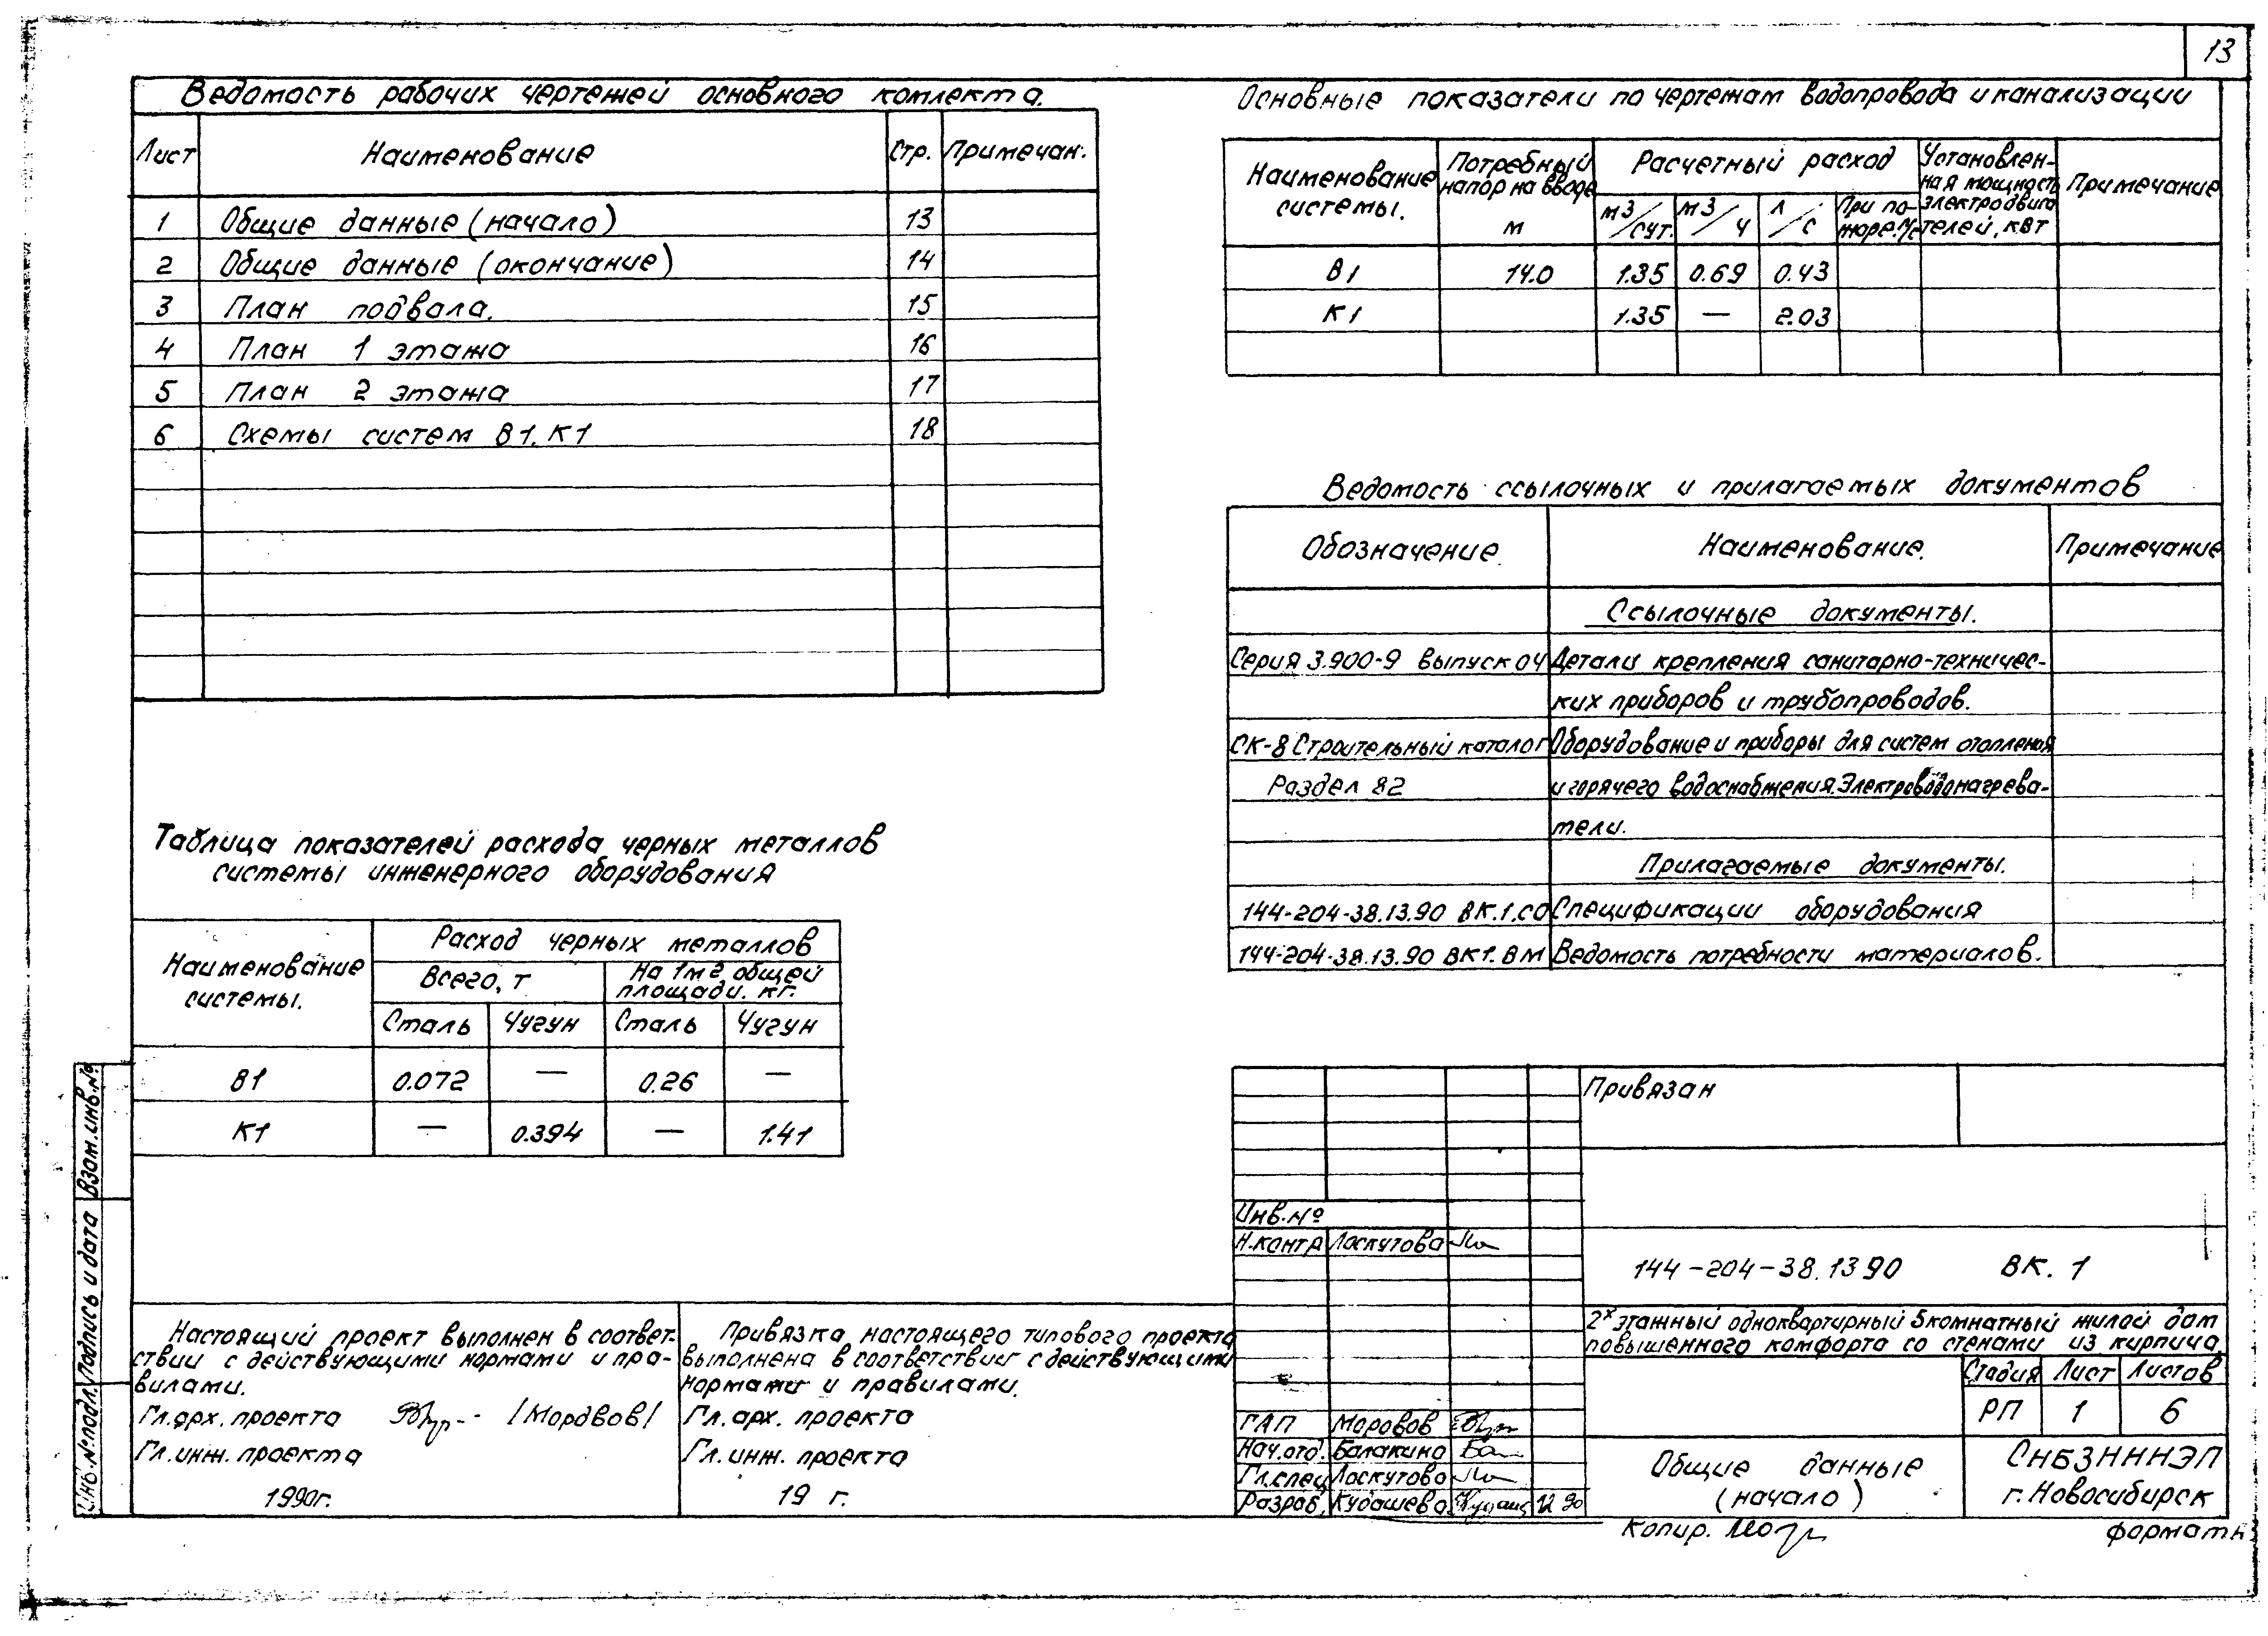 13
Ведомость рабочих чертежей основного комлекта.
Лист Наименование Стр. Примечан.
1 Общие данные (начало) 13
2 Общие данные (окончание) 14
3 План подвала. 15
4 План 1 этажа 16
5 План 2 этажа 17
6 Схемы систем В1, К1 18
Основные показатели по чертежам водопровода и канализации
Наименование системы.
Потребный напор на вводе м
Расчетный расход
м3/сут. м3/ч л/с При пожаре л/с
Установленная мощность электродвигателей, квт
Примечание
В1 14.0 1.35 0.69 0.43
К1 1.35 — 2.03
Ведомость ссылочных и прилагаемых документов
Обозначение. Наименование. Примечание
Ссылочные документы.
Серия 3.900-9 выпуск 04 Детали крепления санитарно-техничес-
ких приборов и трубопроводов.
СК-8 Строительный каталог Оборудование и приборы для систем отопления
Раздел 82 и горячего водоснабжения. Электроводонагрева-
тели.
Прилагаемые документы.
144-204-38.13.90 ВК.1.СО Спецификации оборудования
144-204-38.13.90 ВК1.ВМ Ведомость потребности материалов.
Таблица показателей расхода черных металлов
системы инженерного оборудования
Наименование системы.
Расход черных металлов
Всего, т На 1м2 общей площади. кг.
Сталь Чугун Сталь Чугун
В1 0.072 — 0.26 —
К1 — 0.394 — 1.41
Взам.инв.№
Подпись и дата
Инв.№ подл.
Настоящий проект выполнен в соответ-
ствии с действующими нормами и пра-
вилами.
Гл.арх. проекта /Мордвов/
Гл.инж. проекта
1990г.
Привязка настоящего типового проекта
выполнена в соответствии с действующими
нормами и правилами.
Гл.арх. проекта
Гл.инж. проекта
19 г.
Привязан
Инв.№
Н.контр Лоскутова
144-204-38.13 90 ВК. 1
2х этажный одноквартирный 5комнатный жилой дом
повышенного комфорта со стенами из кирпича.
Стадия Лист Листов
РП 1 6
ГАП Моровов
Нач.отд. Балакина
Гл.спец Лоскутова
Разраб. Кудашева 12 90
Общие данные
(начало)
СНБЗНННЭП
г. Новосибирск
Копир.
формат